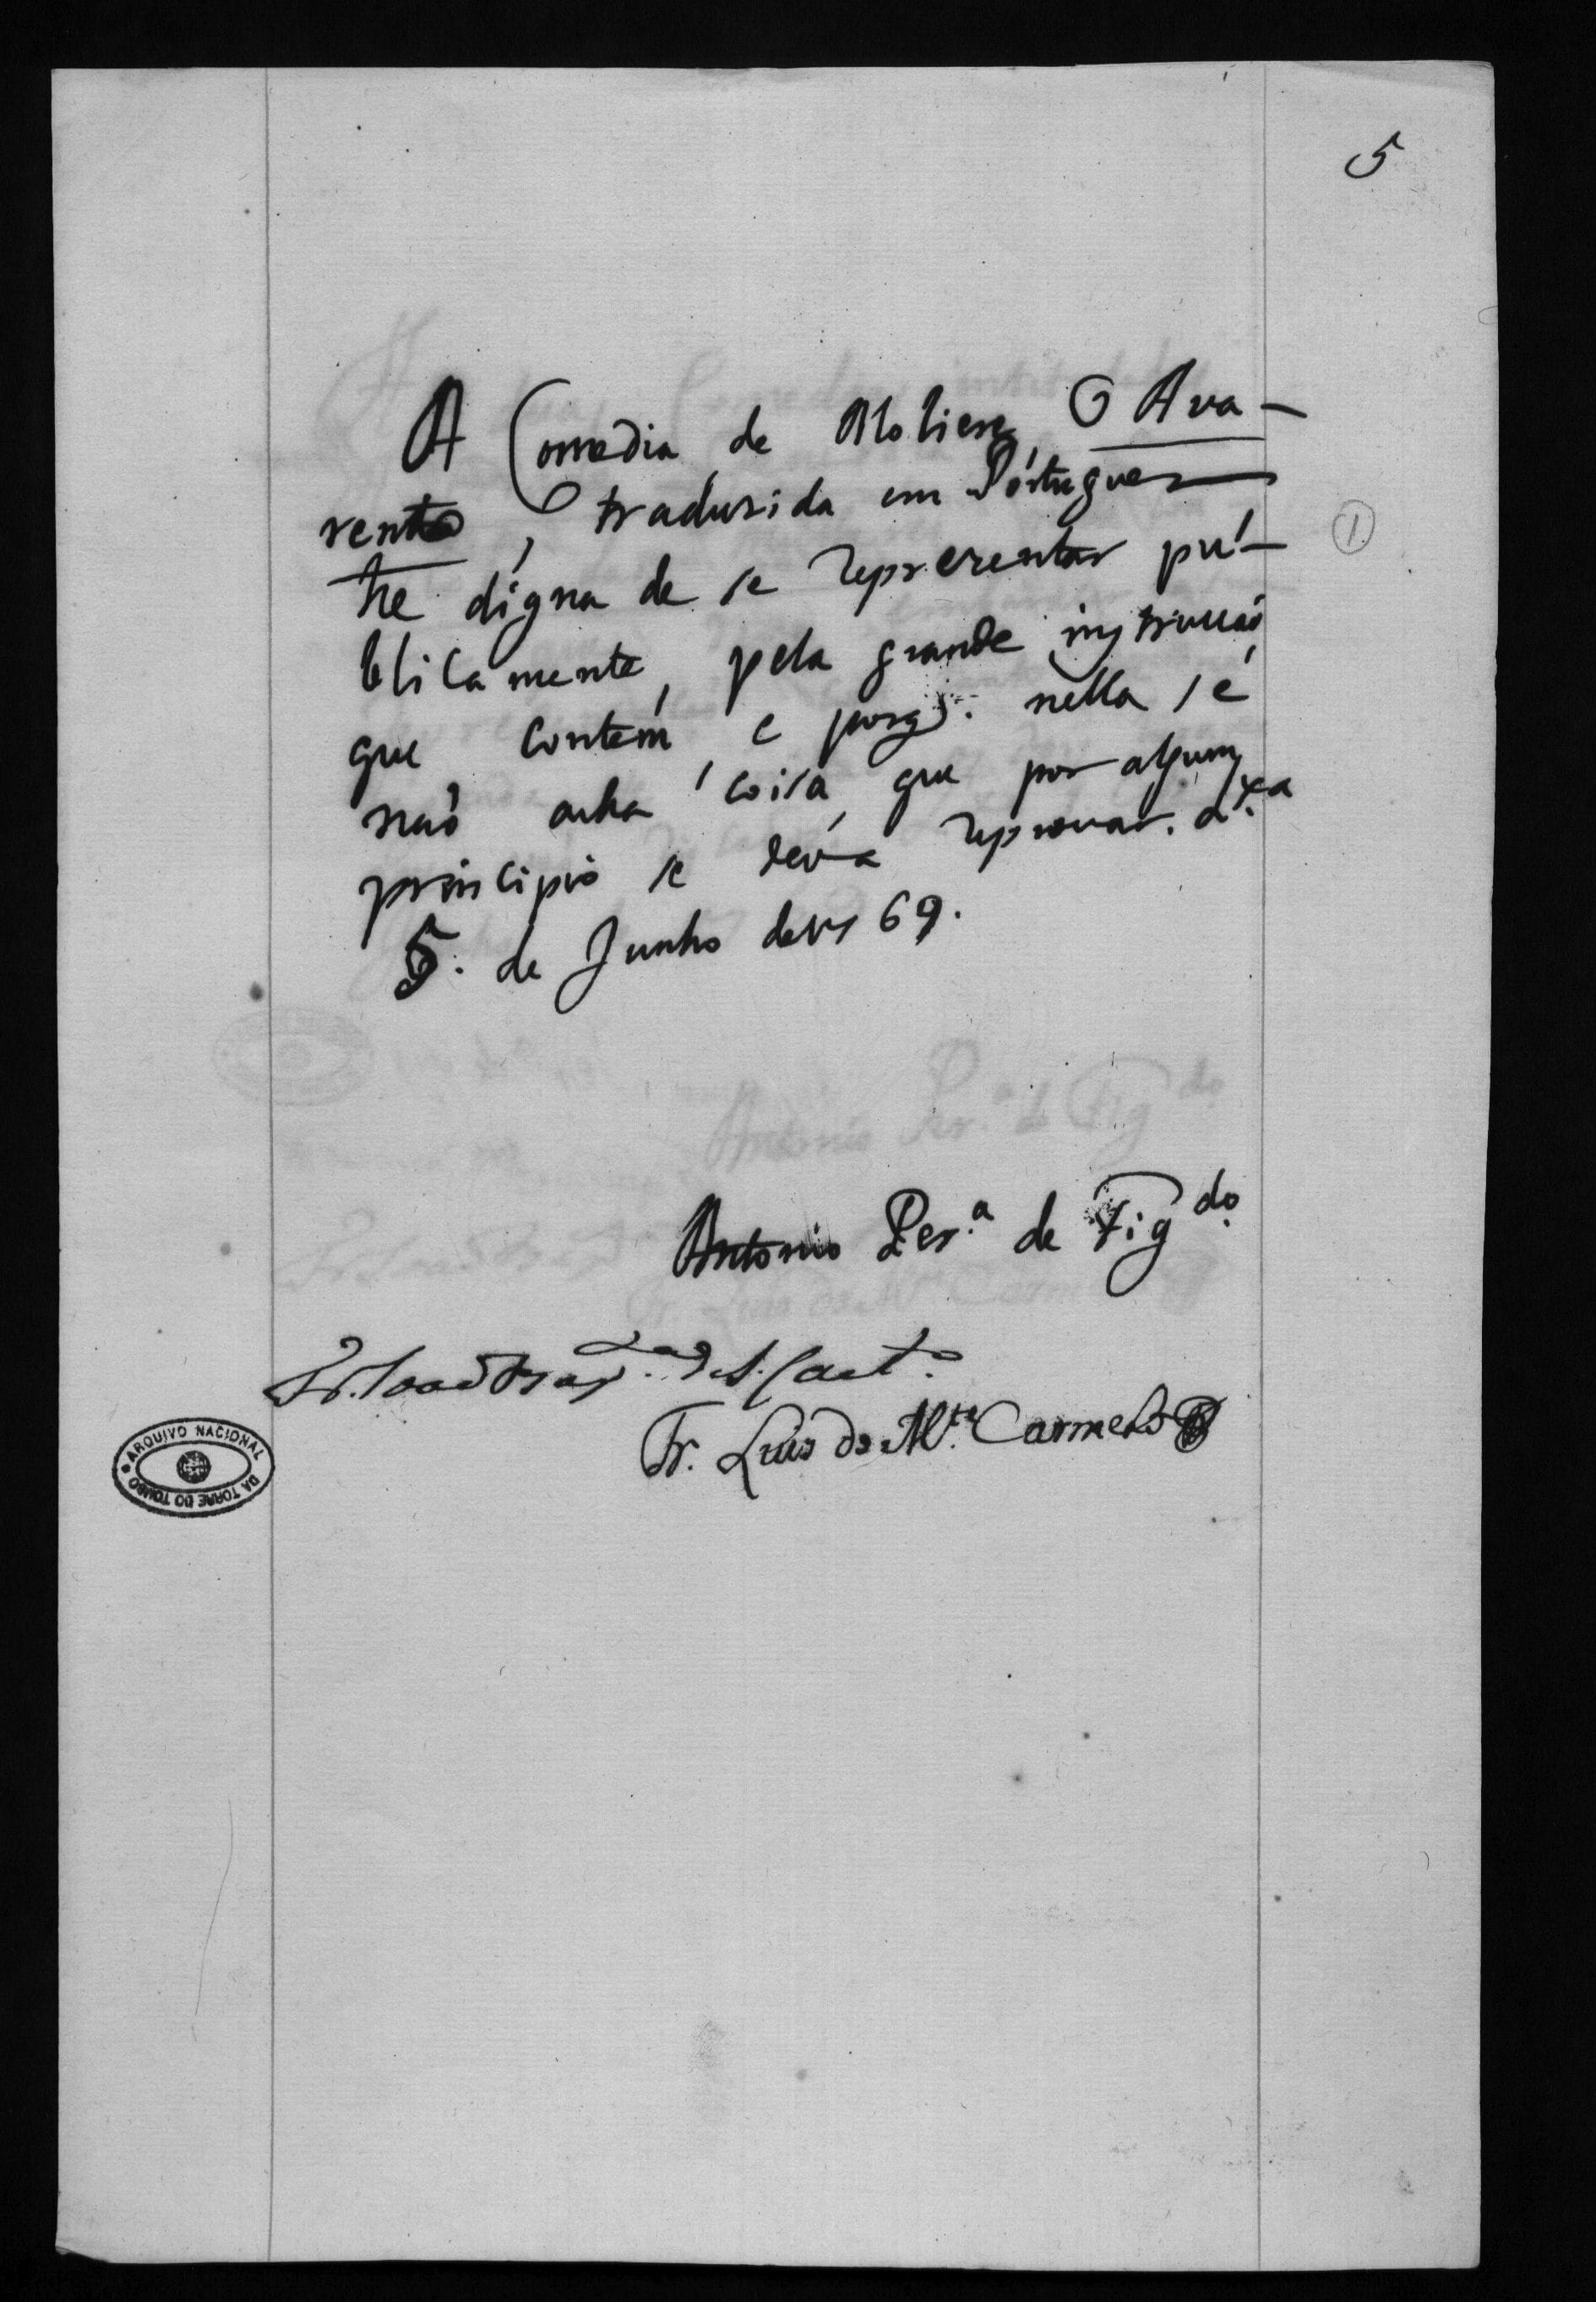 5
A Comedia de Moliere, O Ava-
rento, tradusida em Portuguez
he digna de se representar pú-
blicamente, pela grande instrucçaõ
que contém, e porq̃. nella se
naõ acha coisa, que por algum
principio se deva reprovar. Lx.ª
5. de Junho de 1769.
1
Antonio Per.ª de Fig.do
Fr. Joaõ Bap.ta de S. Caet.º
Fr. Luis do M.te Carmelo
ARQUIVO NACIONAL
DA TORRE DO TOMBO